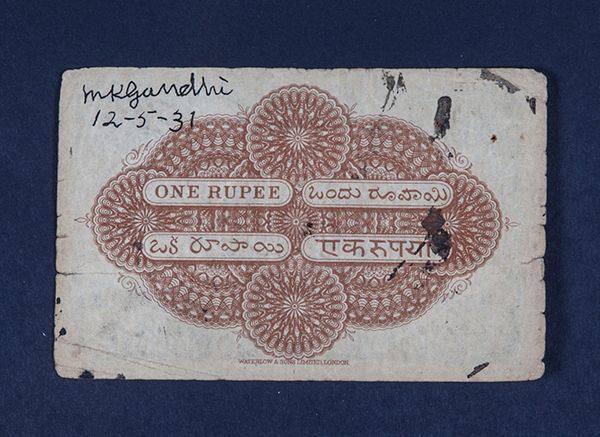 mkGandhi
12-5-31
ONE RUPEE
ಒಂದು ರೂಪಾಯಿ
ఒక రూపాయి
एक रुपया
WATERLOW & SONS LIMITED, LONDON.